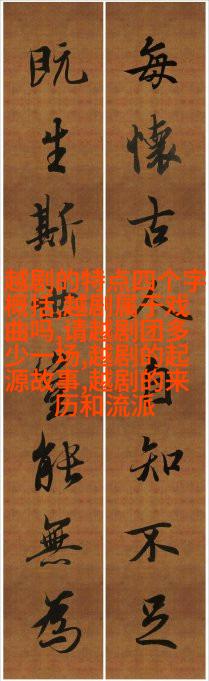 每懷古人自知不足
既生斯能無為
越剧的特点四个字
概括,越剧属于戏
曲吗,请越剧团多
少一场,越剧的起
源故事,越剧的来
历和流派